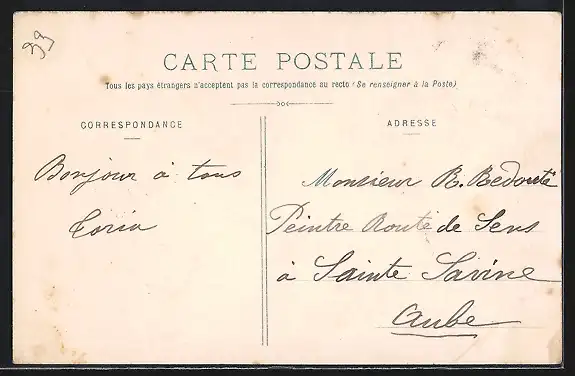 33
CARTE POSTALE
Tous les pays étrangers n'acceptent pas la correspondance au recto (Se renseigner à la Poste)
CORRESPONDANCE
ADRESSE
Bonjour à tous
Monsieur R. Bedouté
Peintre Route de Sens
à Sainte Savine
Aube